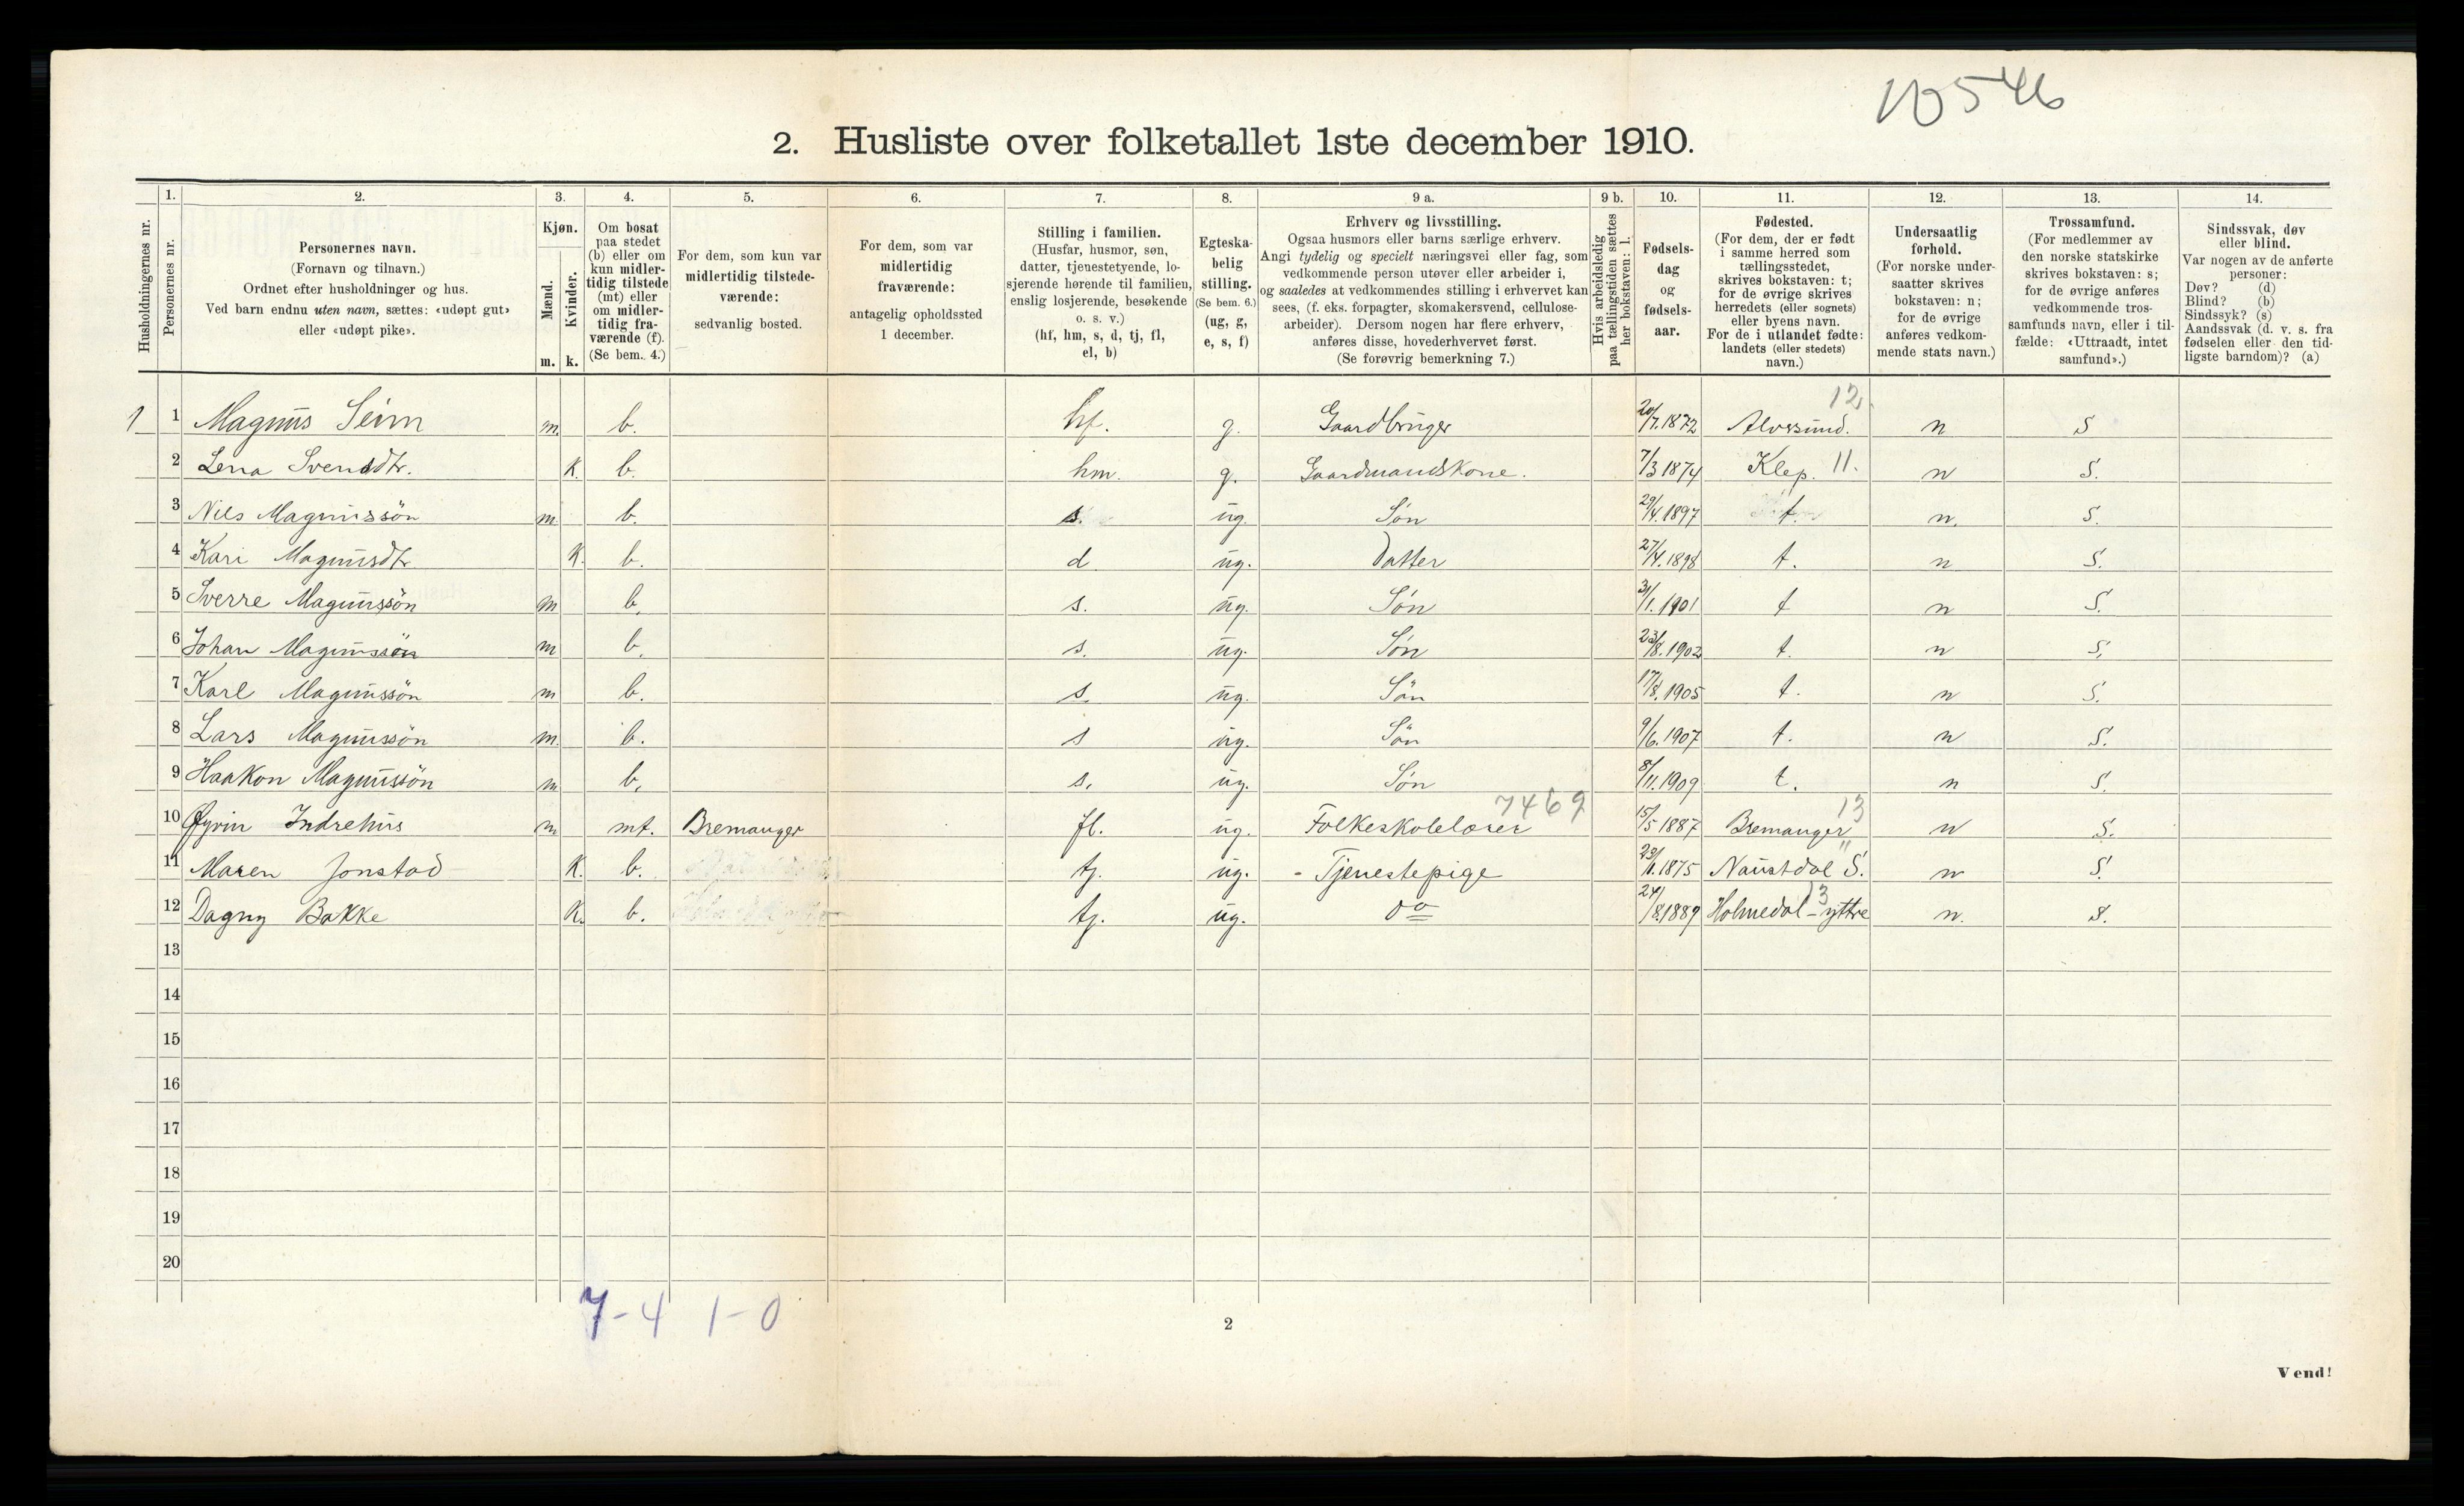 10546
2. Husliste over folketallet 1ste december 1910.
Husholdningernes nr.
1.
Personernes nr.
2.
Personernes navn.
(Fornavn og tilnavn.)
Ordnet efter husholdninger og hus.
Ved barn endnu uten navn, sættes: «udøpt gut»
eller «udøpt pike».
3.
Kjøn.
Mænd.
m.
Kvinder.
k.
4.
Om bosat
paa stedet
(b) eller om
kun midler-
tidig tilstede
(mt) eller
om midler-
tidig fra-
værende (f).
(Se bem. 4.)
5.
For dem, som kun var
midlertidig tilstede-
værende:
sedvanlig bosted.
6.
For dem, som var
midlertidig
fraværende:
antagelig opholdssted
1 december.
7.
Stilling i familien.
(Husfar, husmor, søn,
datter, tjenestetyende, lo-
sjerende hørende til familien,
enslig losjerende, besøkende
o. s. v.)
(hf, hm, s, d, tj, fl,
el, b)
8.
Egteska-
belig
stilling.
(Se bem. 6.)
(ug, g,
e, s, f)
9 a.
Erhverv og livsstilling.
Ogsaa husmors eller barns særlige erhverv.
Angi tydelig og specielt næringsvei eller fag, som
vedkommende person utøver eller arbeider i,
og saaledes at vedkommendes stilling i erhvervet kan
sees, (f. eks. forpagter, skomakersvend, cellulose-
arbeider). Dersom nogen har flere erhverv,
anføres disse, hovederhvervet først.
(Se forøvrig bemerkning 7.)
9 b.
Hvis arbeidsledig
paa tællingstiden sættes
her bokstaven: l.
10.
Fødsels-
dag
og
fødsels-
aar.
11.
Fødested.
(For dem, der er født
i samme herred som
tællingsstedet,
skrives bokstaven: t;
for de øvrige skrives
herredets (eller sognets)
eller byens navn.
For de i utlandet fødte:
landets (eller stedets)
navn.)
12.
Undersaatlig
forhold.
(For norske under-
saatter skrives
bokstaven: n;
for de øvrige
anføres vedkom-
mende stats navn.)
13.
Trossamfund.
(For medlemmer av
den norske statskirke
skrives bokstaven: s;
for de øvrige anføres
vedkommende tros-
samfunds navn, eller i til-
fælde: «Uttraadt, intet
samfund».)
14.
Sindssvak, døv
eller blind.
Var nogen av de anførte
personer:
Døv? (d)
Blind? (b)
Sindssyk? (s)
Aandssvak (d. v. s. fra
fødselen eller den tid-
ligste barndom)? (a)
12.
1 1 Magnus Seim m. b. hf. g. Gaardbruger 20/7.1872 Alversund. n S
2 Lena Svensdtr. K. b. hm. g. Gaardmandskone. 7/3 1874 Klep. 11. n S.
3 Nils Magnussön m b. s. ug. Søn 29/4.1897 t. n. S.
4 Kari Magnusdtr K. b. d ug. Datter 27/4.1898 t. n S.
5 Sverre Magnussön m b. s. ug. Søn 31/1.1901 t n S.
6 Johan Magnussön m b. s. ug. Søn 23/8.1902 t. n S.
7 Karl Magnussön m b. s. ug. Søn 17/8.1905 t. n S.
8 Lars Magnussön m. b. s ug. Søn 9/6.1907 t. n S.
9 Haakon Magnussön m b. s. ug. Søn 8/11.1909 t. n S.
7469 13
10 Øyvin Indrehus m mt. Bremanger fl. ug. Folkeskolelærer 15/5 1887 Bremanger n S.
11 Maren Jonstad K. b. tj. ug. - Tjenestepige 1875 Naustdal S. 11 n S.
12 Dagny Bakke K. b. tj. ug. do 24/8.1889 Holmedal - yttre 13 n. S.
13
14
15
16
17
18
19
20
7-4 1-0
2
Vend!